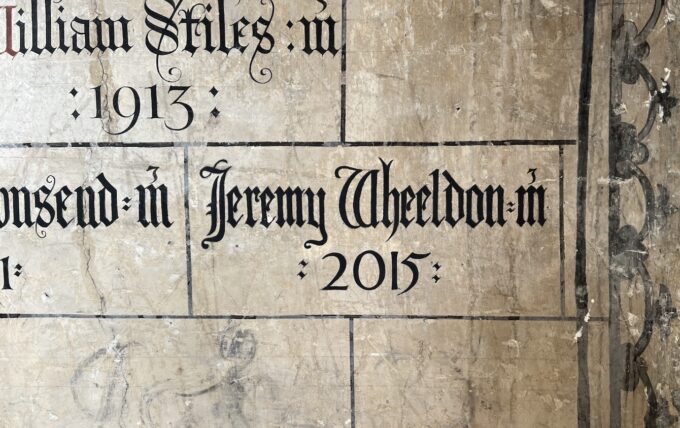 William Stiles : m̄
: 1913 :
onsend : m̄
1:
Jeremy Wheeldon : m̄
: 2015 :